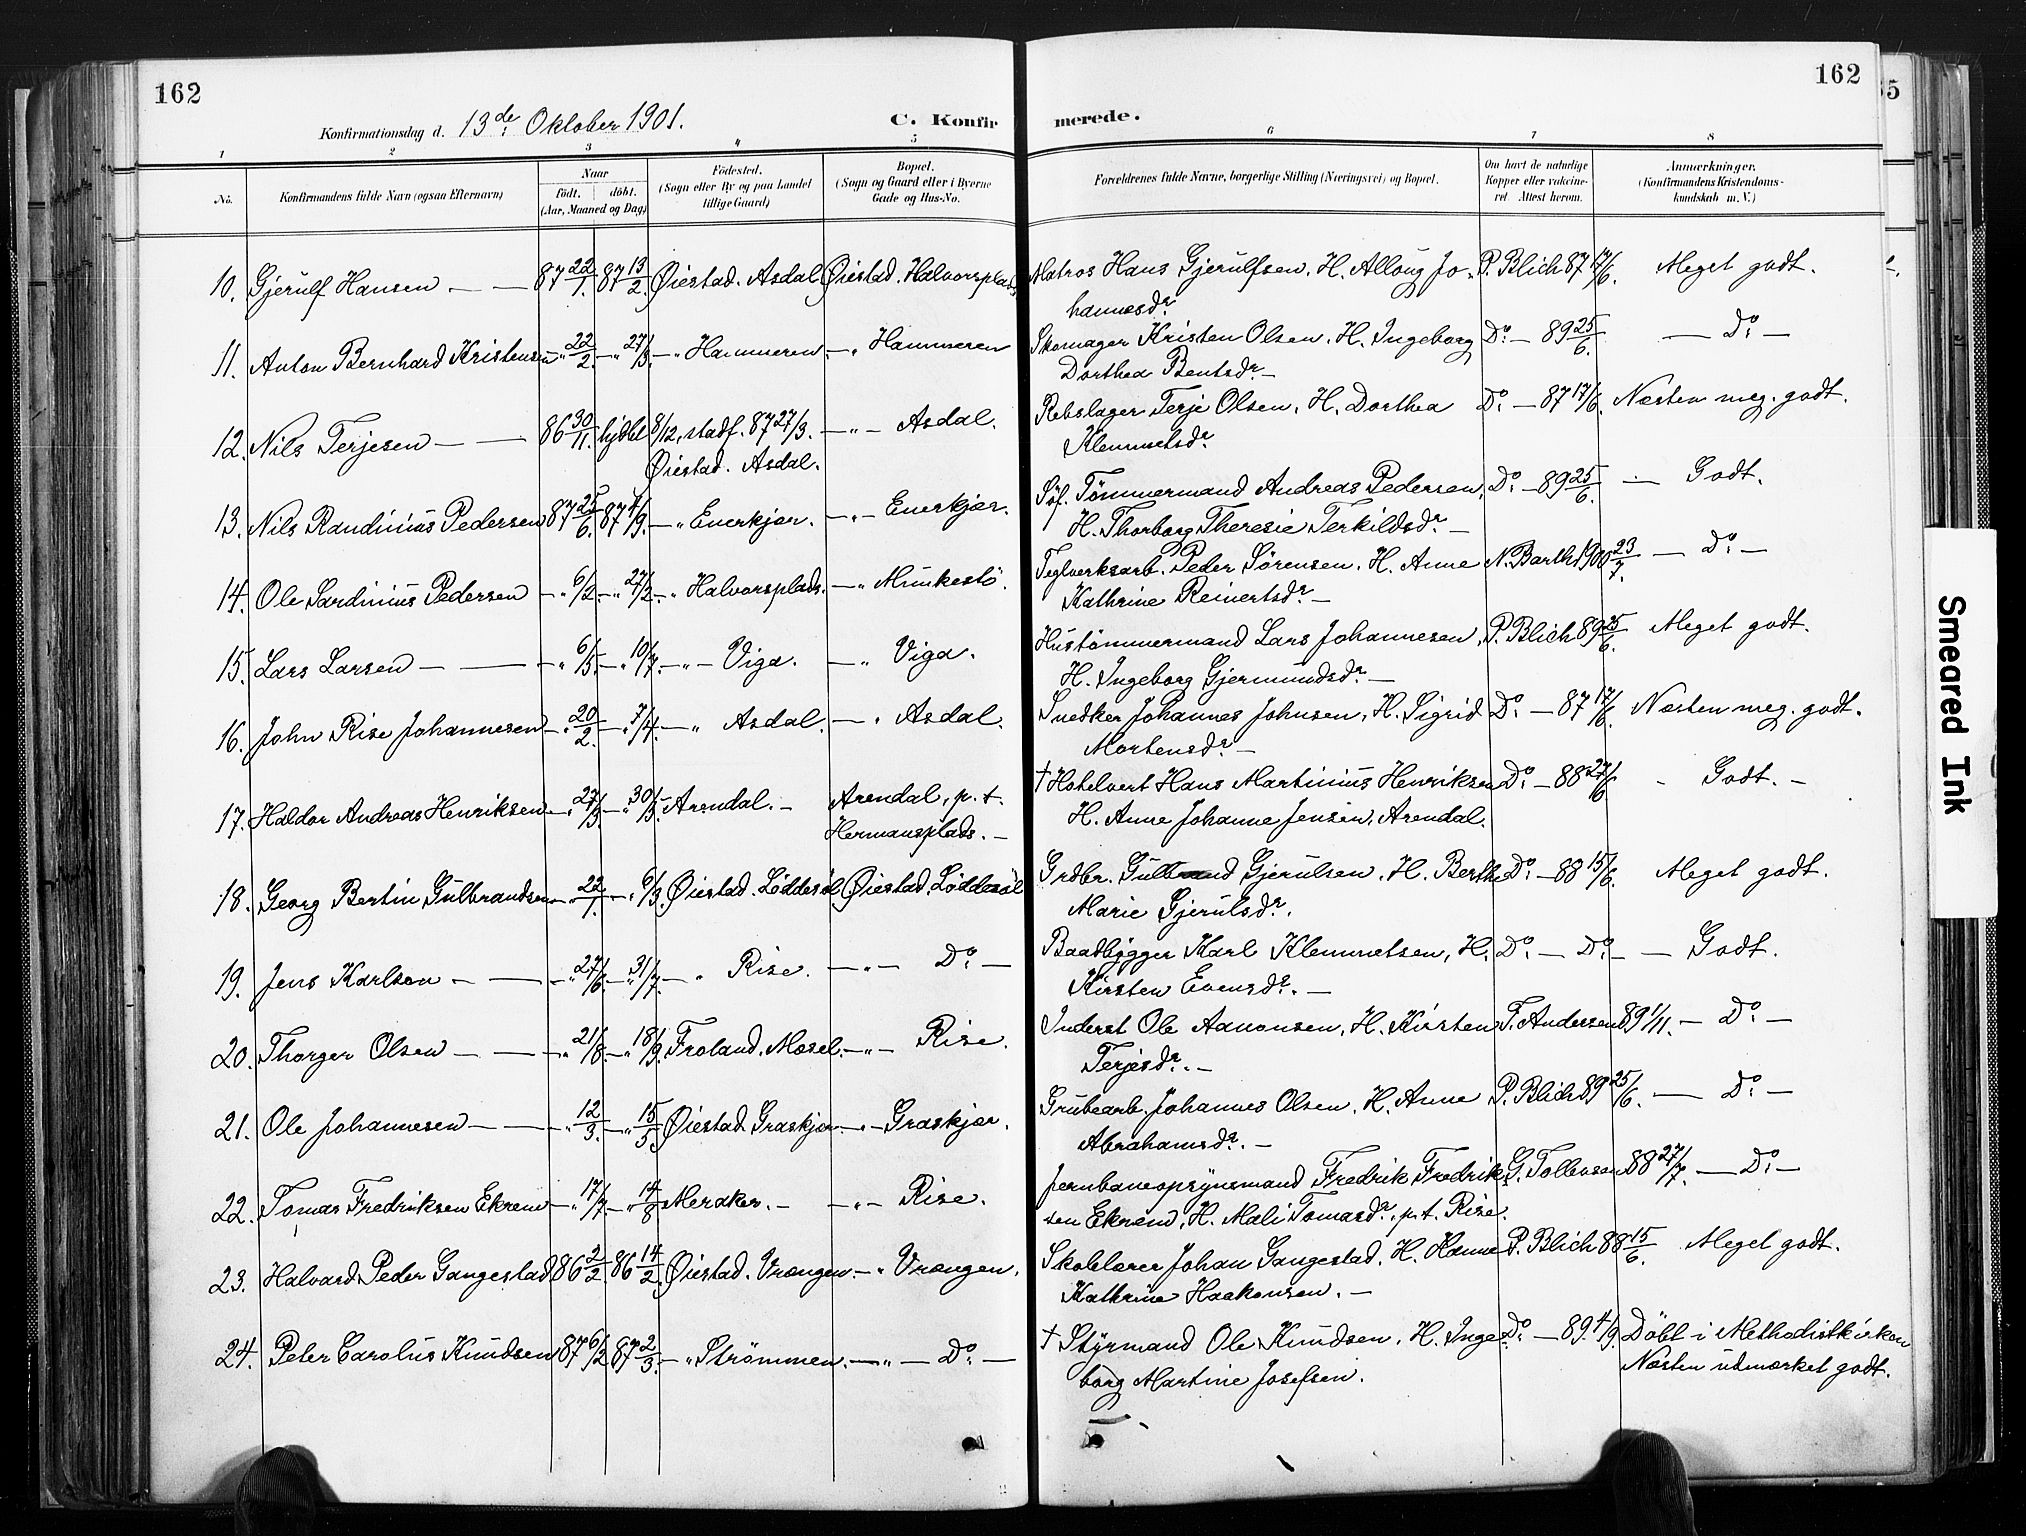 162
162
35
Konfirmationsdag d. 13de Oktober 1901.
C. Konfirmerede.
1 2 3 4 5 6 7 8
No. Konfirmandens fulde Navn (ogsaa Efternavn) Naar født. døbt. (Aar, Maaned og Dag) Fødested. (Sogn eller By og paa Landet tillige Gaard) Bopæl. (Sogn og Gaard eller i Byerne Gade og Hus-No. Forældrenes fulde Navne, borgerlige Stilling (Næringsvei) og Bopæl. Om havt de naturlige Kopper eller vakcineret. Attest herom. Anmærkninger. (Konfirmandens Kristendomskundskab m. V.)
10. Gjerulf Hansen — — 87 22/1. 87 13/2. Øiestad. Asdal Øiestad. Halvorsplads Matros Hans Gjerulfsen. H. Alloug Jo- P. Blich 87 17/6. Meget godt.
hannesdr.
11. Anton Bernhard Kristensen — „ 22/2. — „ 27/3. — „ Hammeren — „ Hammeren Skomager Kristen Olsen. H. Ingeborg Do. — 89 25/6. — Do. —
Dorthea Bentsdr. —
12. Nils Terjesen — — 86 30/11. hjdbt 8/12, stadf. 87 27/3. — „ — Asdal. Rebslager Terje Olsen. H. Dorthea Do. — 87 17/6. Næsten meg. godt.
Øiestad. Asdal. Klemmetsdr.
13. Nils Randinius Pedersen 87 25/6. 87 4/9. — „ Enerkjær. — „ — Enerkjær. Søf. Tømmermand Andreas Pedersen, Do. — 89 25/6. — Godt.
H. Thorborg Theresie Terkildsdr. —
14. Ole Sardinius Pedersen — „ 6/2. — „ 27/2. — „ Halvorsplads. — „ Munkestø. Teglverksarb. Peder Sørensen, H. Anne N. Barth 1900 23/7. — Do. —
Kathrine Reinertsdr. —
15. Lars Larsen — — — „ 6/5. — „ 10/7. — „ — Viga. — „ Viga. Hustømmermand Lars Johannesen, P. Blich 89 25/6. Meget godt.
H. Ingeborg Gjermundsdr. —
16. John Rise Johannesen — „ 20/2. — „ 7/4. — „ Asdal. — „ Asdal. Snedker Johannes Johnsen, H. Sigrid Do. — 87 17/6. Næsten meg. godt.
Mortensdr. —
17. Haldor Andreas Henriksen — „ 27/3. — „ 30/5. Arendal. — Arendal, p. t. † Hotelvert Hans Martinius Henriksen Do. — 88 27/6 - Godt. —
Hermansplads. — H. Anne Johanne Jensen, Arendal.
18. Georg Bertin Gulbrandsen — „ 22/1. — „ 6/3. Øiestad. Løddesøl Øiestad. Løddesøl Grdbr. Gulbrand Gjerulsen, H. Berthe Do. — 88 15/6. Meget godt.
Marie Gjerulsdr.
19. Jens Karlsen — — — „ 27/6. — „ 31/7. — „ Rise. — „ — Do. — Baadbygger Karl Klemmetsen, H. Do. — Do. — — Godt.
Kirsten Evensdr. —
20. Thorger Olsen — — — „ 21/8. — „ 18/9. Froland. Mosel. — „ — Rise. Inderst Ole Aanonsen, H. Kirsten F. Andersen 89 1/11. — Do. —
Terjesdr. —
21. Ole Johannesen — — — „ 12/3. — „ 15/5. Øiestad Graskjær — „ — Graskjær. Grubearb. Johannes Olsen, H. Anne P. Blich 89 25/6. — Do. —
Abrahamsdr. —
22. Tomas Fredriksen Ekrene — „ 17/7. — „ 14/8 Meraker. — — „ — Rise. Jernbaneopsynsmand Fredrik Fredrik- G. Tollevsen 88 27/7. — Do. —
sen Ekrene, H. Mali Tomasdr., p. t. Rise.
23. Halvard Peder Gangestad 86 2/2 86 14/2. Øiestad. Vrængen. — „ Vrængen. Skolelærer Johan Gangestad. H. Hanne P. Blich 88 15/6. Meget godt.
Kathrine Haakensen. —
24. Peter Carolus Knudsen 87 6/2 87 2/3. — „ Strømmen. — „ — Do. — † Styrmand Ole Knudsen, H. Inge- Do. — 89. 4/9. Døbt i Methodistkirken
borg Martine Josefsen. Næsten udmærket godt.
Smeared Ink